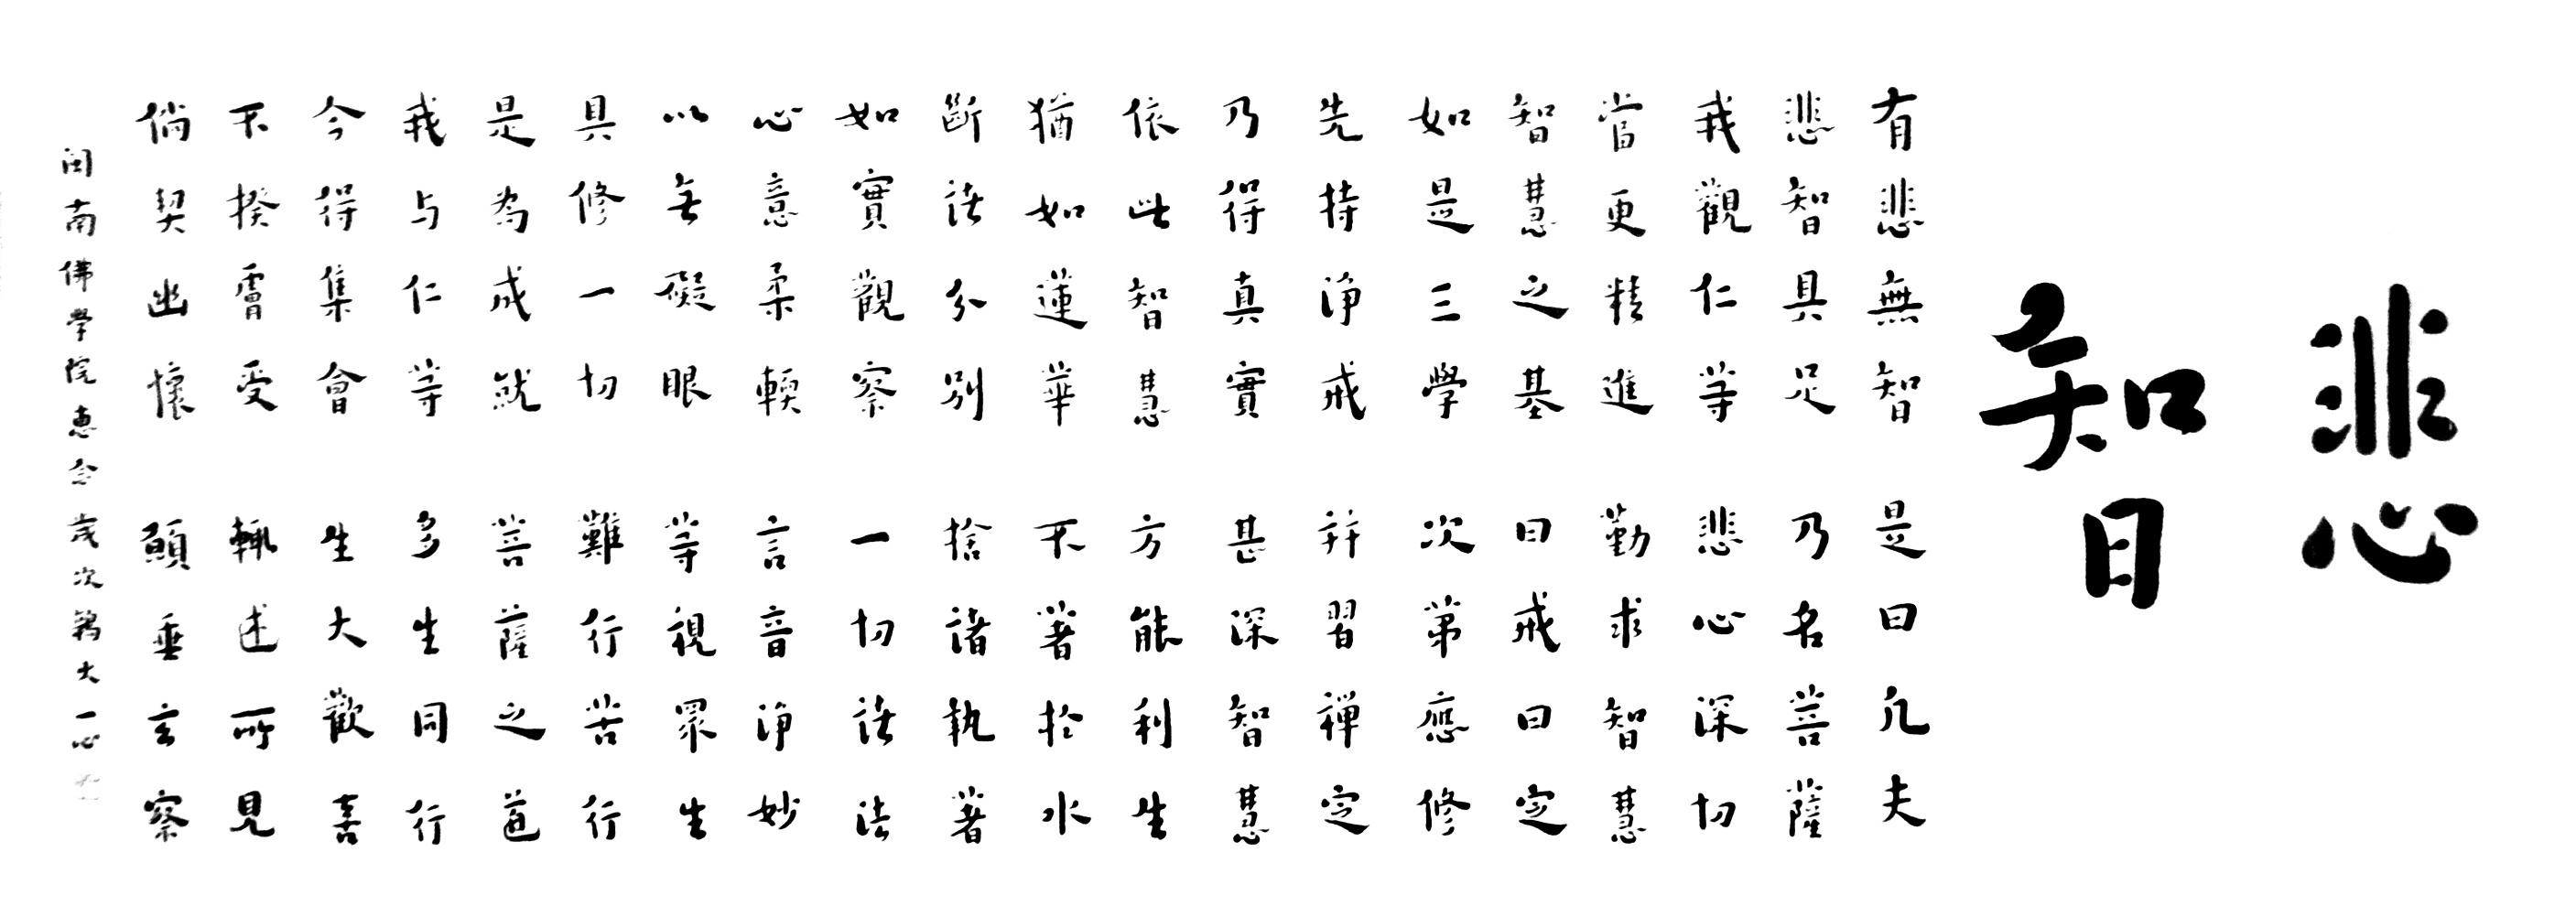 悲智
有悲無智 是曰凡夫
悲智具足 乃名菩薩
我觀仁等 悲心深切
當更精進 勤求智慧
智慧之基 曰戒曰定
如是三學 次第應修
先持淨戒 并習禪定
乃得真實 甚深智慧
依此智慧 方能利生
猶如蓮華 不著於水
斷諸分別 捨諸執著
如實觀察 一切諸法
心意柔輭 言音淨妙
以无礙眼 等視眾生
具修一切 難行苦行
是為成就 菩薩之道
我与仁等 多生同行
今得集會 生大歡喜
不揆膚受 輒述所見
倘契幽懷 願垂玄察
閩南佛學院惠念 歲次鶉火一心